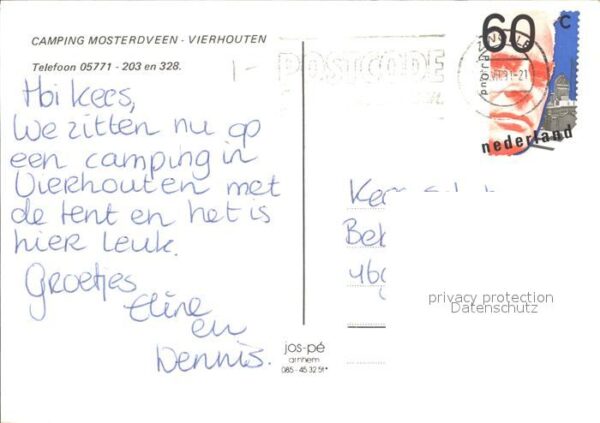 CAMPING MOSTERDVEEN - VIERHOUTEN
Telefoon 05771 - 203 en 328.
Hoi Kees,
We zitten nu op
een camping in
Vierhouten met
de tent en het is
hier leuk.
Groetjes
Eline
en
Dennis.
POSTCODE
60 c
nederland
Bek
460
privacy protection
Datenschutz
jos-pé
arnhem
085-45 32 51*